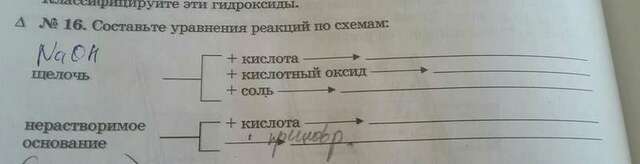 Классифицируйте эти гидроксиды.
Δ № 16. Составьте уравнения реакций по схемам:
NaOH
щелочь
+ кислота
+ кислотный оксид
+ соль
нерастворимое основание
+ кислота
t